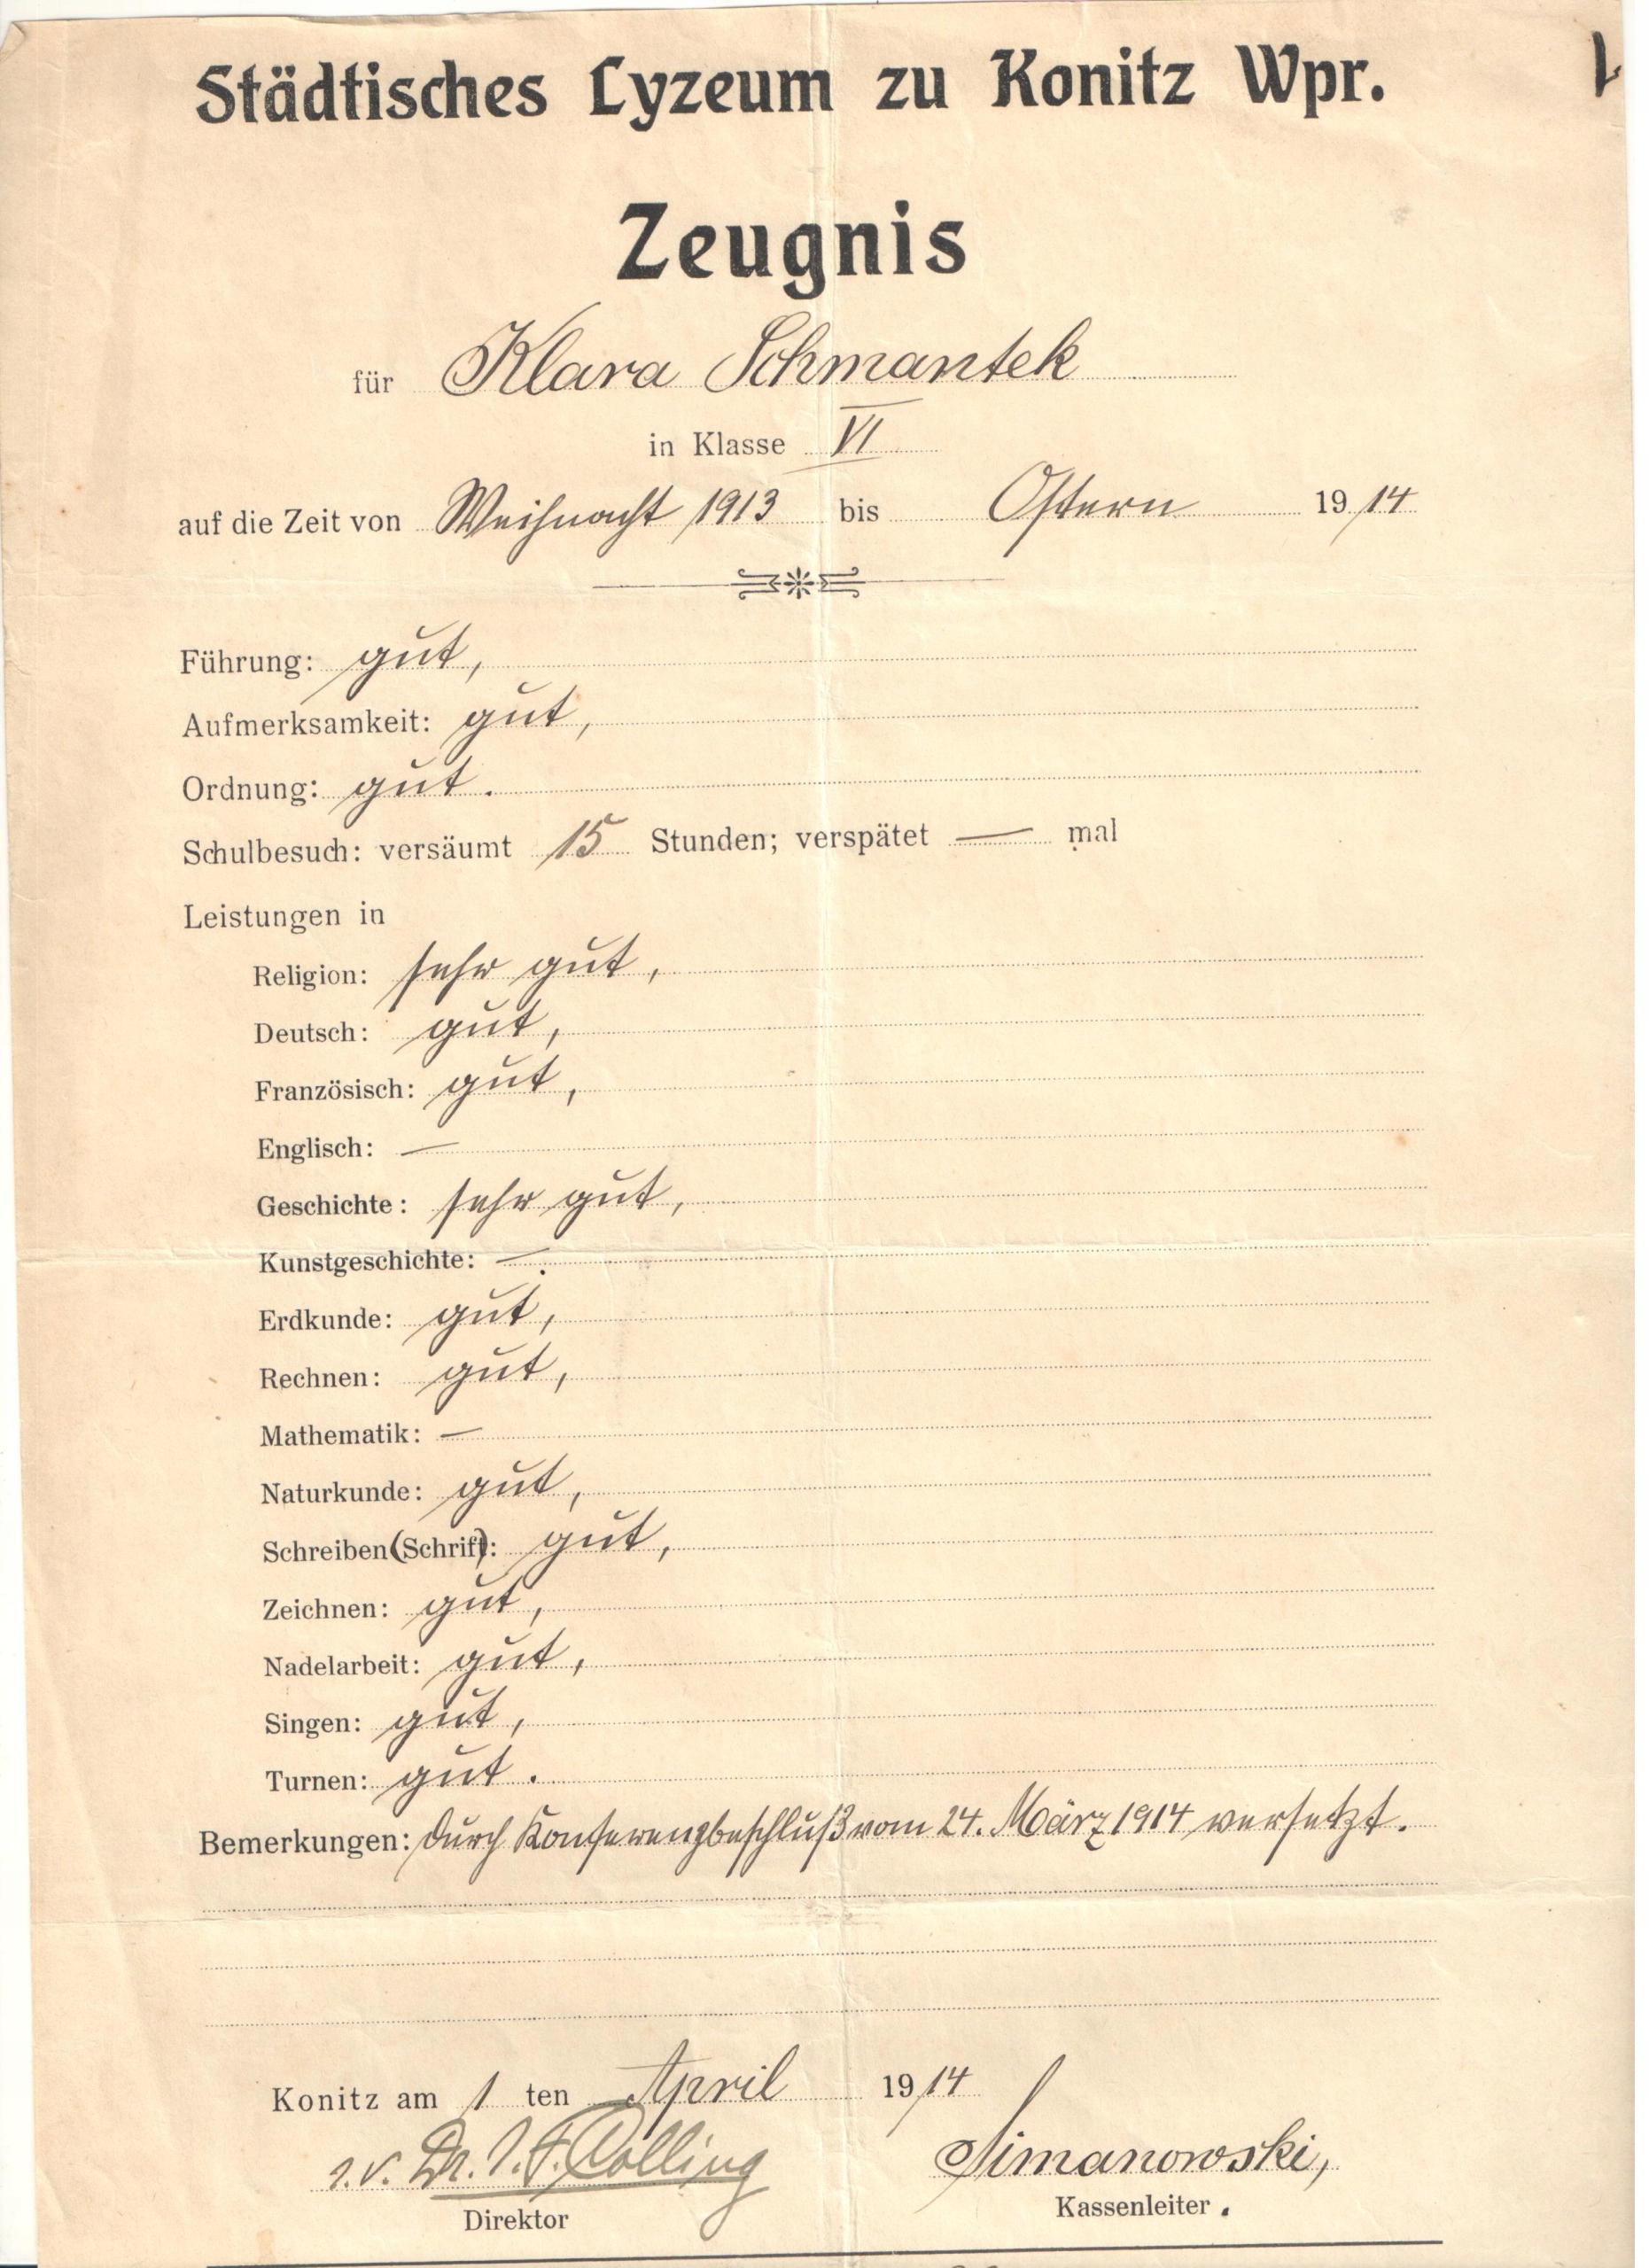 Städtisches Lyzeum zu Konitz Wpr.
Zeugnis
für Klara Schmantek
in Klasse VI
auf die Zeit von Weihnacht 1913 bis Ostern 1914
Führung: gut,
Aufmerksamkeit: gut,
Ordnung: gut.
Schulbesuch: versäumt 15 Stunden; verspätet — mal
Leistungen in
Religion: sehr gut,
Deutsch: gut,
Französisch: gut,
Englisch: —
Geschichte: sehr gut,
Kunstgeschichte: —.
Erdkunde: gut,
Rechnen: gut,
Mathematik: —
Naturkunde: gut,
Schreiben (Schrift): gut,
Zeichnen: gut,
Nadelarbeit: gut,
Singen: gut,
Turnen: gut.
Bemerkungen: durch Konferenzbeschluß vom 24. März 1914 versetzt.
Konitz am 1 ten April 1914
Dr. Simanowski,
Direktor Kassenleiter.